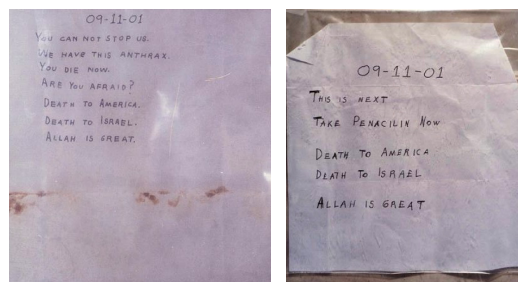 09-11-01
YOU CAN NOT STOP US.
WE HAVE THIS ANTHRAX.
YOU DIE NOW.
ARE YOU AFRAID?
DEATH TO AMERICA.
DEATH TO ISRAEL.
ALLAH IS GREAT.
09-11-01
THIS IS NEXT
TAKE PENACILIN NOW
DEATH TO AMERICA
DEATH TO ISRAEL
ALLAH IS GREAT